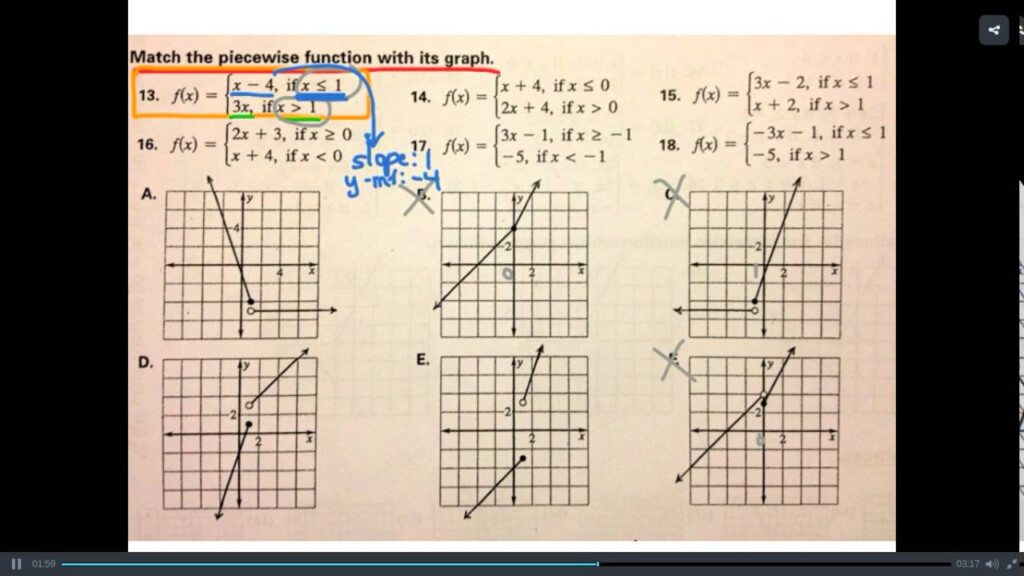 Match the piecewise function with its graph.
13. f(x) = { x − 4, if x ≤ 1
3x, if x > 1
14. f(x) = { x + 4, if x ≤ 0
2x + 4, if x > 0
15. f(x) = { 3x − 2, if x ≤ 1
x + 2, if x > 1
16. f(x) = { 2x + 3, if x ≥ 0
x + 4, if x < 0
17. f(x) = { 3x − 1, if x ≥ −1
−5, if x < −1
18. f(x) = { −3x − 1, if x ≤ 1
−5, if x > 1
slope: 1
y-int: -4
A.
y
4
4
x
B.
y
2
0
2
x
C.
y
2
1
2
x
D.
y
2
2
x
E.
y
2
2
x
F.
y
2
0
2
x
01:59
03:17